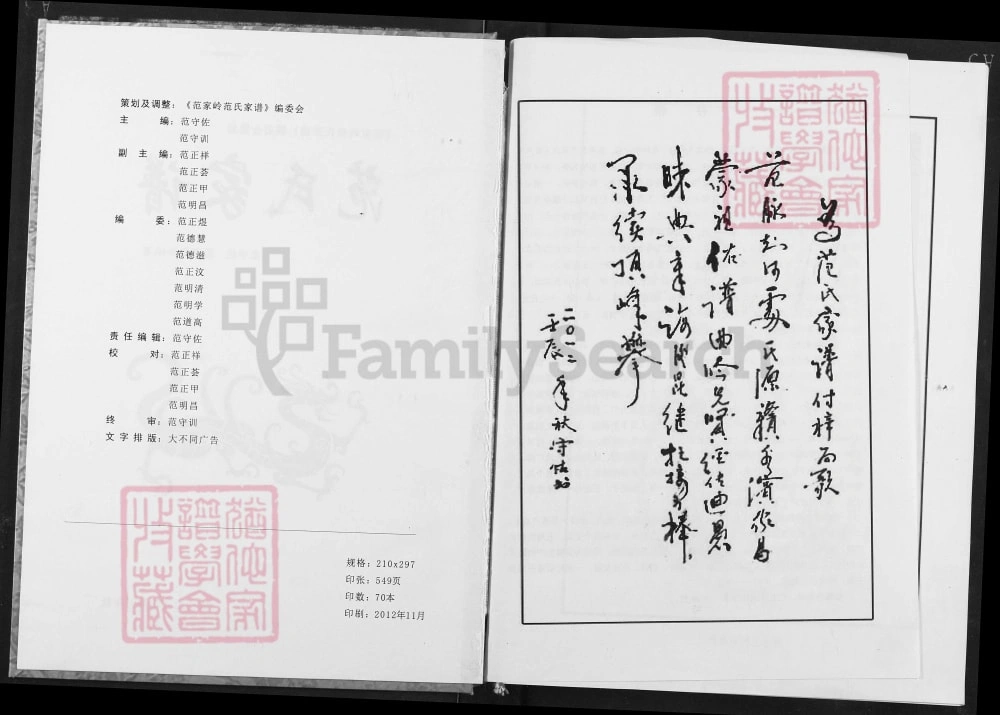 策划及调整：《范家岭范氏家谱》编委会
主 编：范守佐
范守训
副 主 编：范正祥
范正荟
范正甲
范明昌
编 委：范正煜
范德慧
范德滋
范正汶
范明清
范明学
范道高
责任编辑：范守佐
校 对：范正祥
范正荟
范正甲
范明昌
终 审：范守训
文字排版：大不同广告
规格：210x297
印张：549页
印数：70本
印刷：2012年11月
猶他家
譜學會
收藏
猶他家
譜學會
收藏
為范氏家譜付梓而歌
范脉起河 氏源
蒙祖佑譜曲
典章 继 接 棒
续顶峰攀
二〇一二年秋守佐
壬辰
FamilySearch